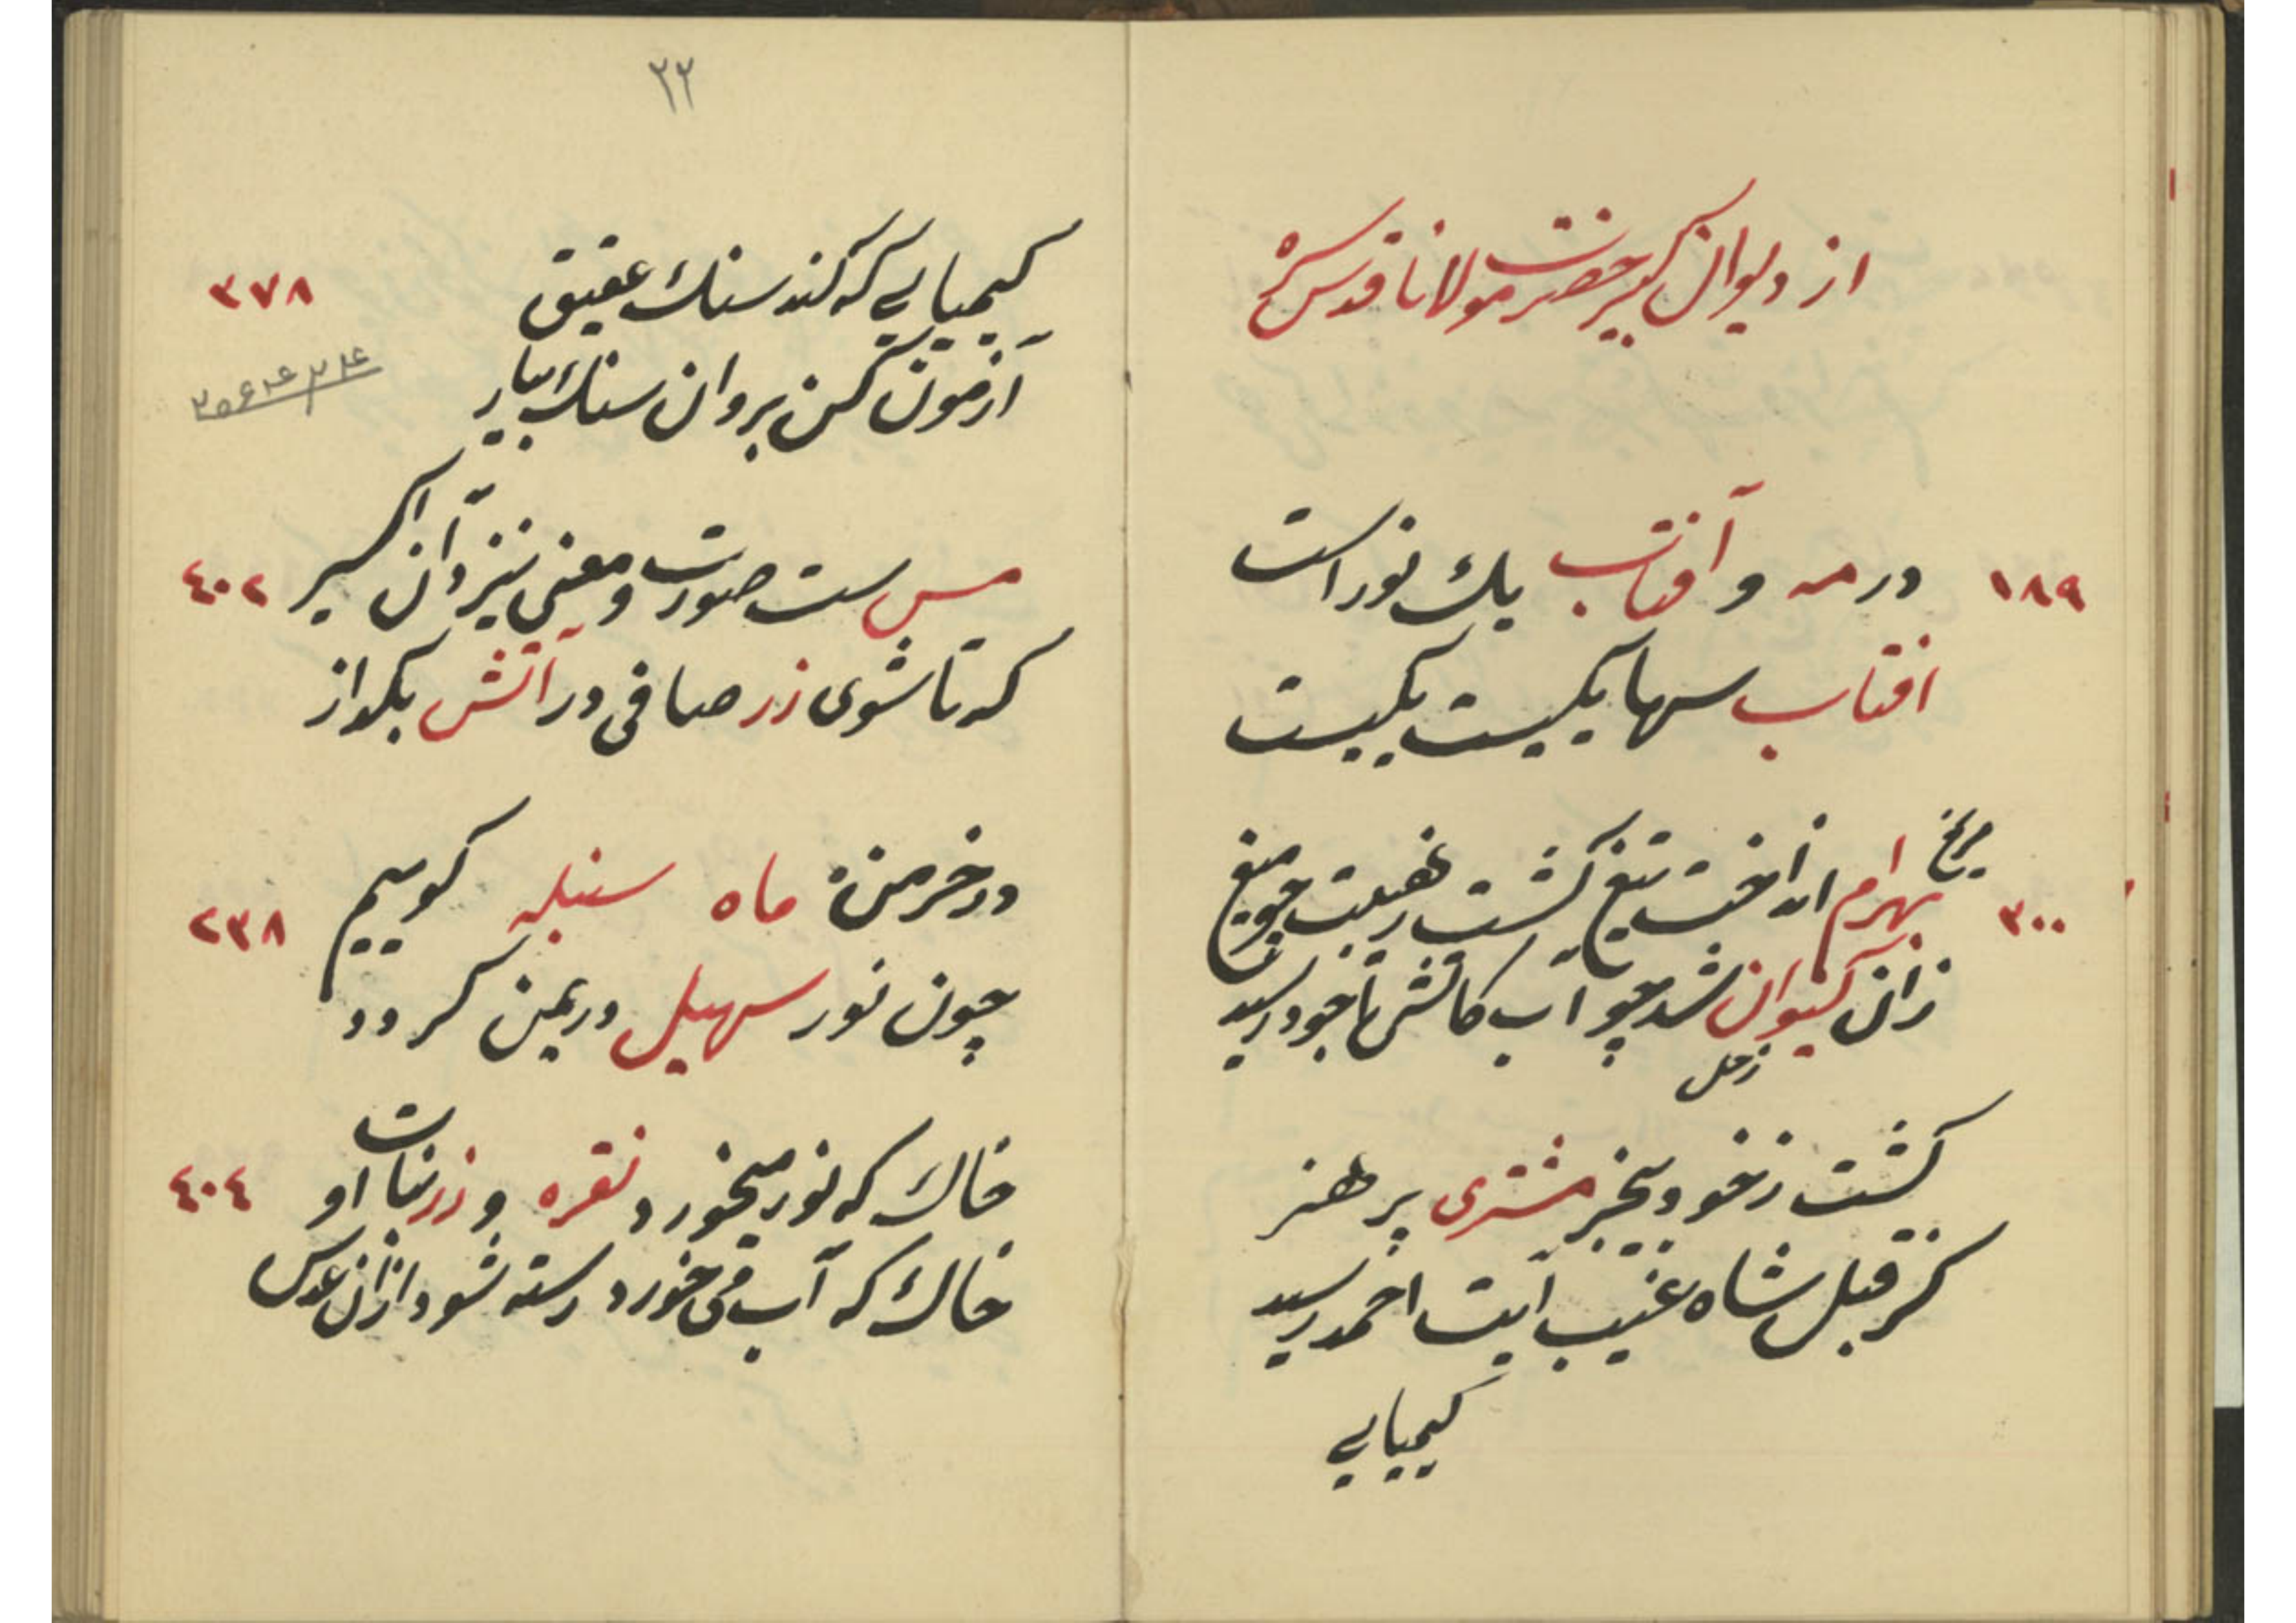 از دیوان کبیر حضرت مولانا قدس سره
۱۸۹
در مه و آفتاب یك نور است
افتاب سها یکیست یکیست
مریخ
۳۰۰
بهرام انداخت تیغ کشت رهیبت چو میغ
زان کیوان شد چو آب کاتش تا خود رسید
زحل
کشت زخود بیخبر مشتری پر هنر
کز قبل شاه غیب آیت احمد رسید
کیمیایی
۲۲
۳۷۸
کیمیایی که کند سنك عقیق
آزمون کن بر وان سنك بیار
۴۰۲
مس ست صورت و معنی نیز آن اکسیر
که تا شوی زر صافی در آتش بکداز
۲۳۸
در خرمن ماه سنبله کوبیم
چون نور سهیل در یمن کردد
۴۰۴
خاك که نور میخورد نقره و زر نبات او
خاك که آب می خورد رسته شود ازان عدس